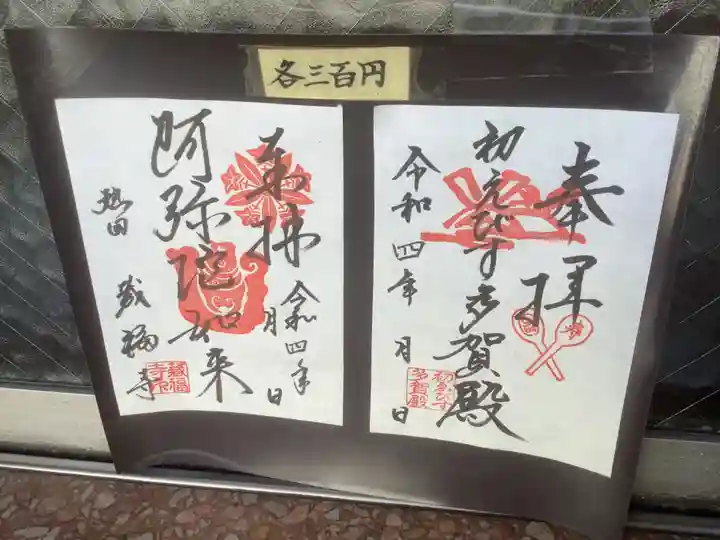 各三百円
奉拝
初えびす多賀殿
令和四年 月 日
初えびす
多賀殿
奉拝
令和四年 月 日
阿弥陀如来
熱田 蔵福寺
蔵福
寺印